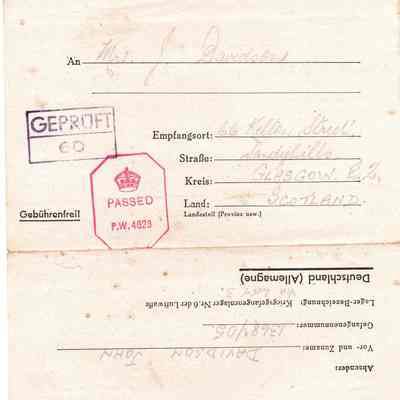 An Mrs. J. Davidson
GEPRÜFT
60
Empfangsort: 66 Keller Street,
Straße: Sandyhills
Kreis: GLASGOW. E.2,
Land: SCOTLAND.
Landesteil (Provinz usw.)
PASSED
P.W. 4823
Gebührenfrei!
Deutschland (Allemagne)
Lager-Bezeichnung: Kriegsgefangenenlager Nr. 6 der Luftwaffe
Gefangenennummer: 1368405.
Vor- und Zuname: DAVIDSON JOHN
Absender: